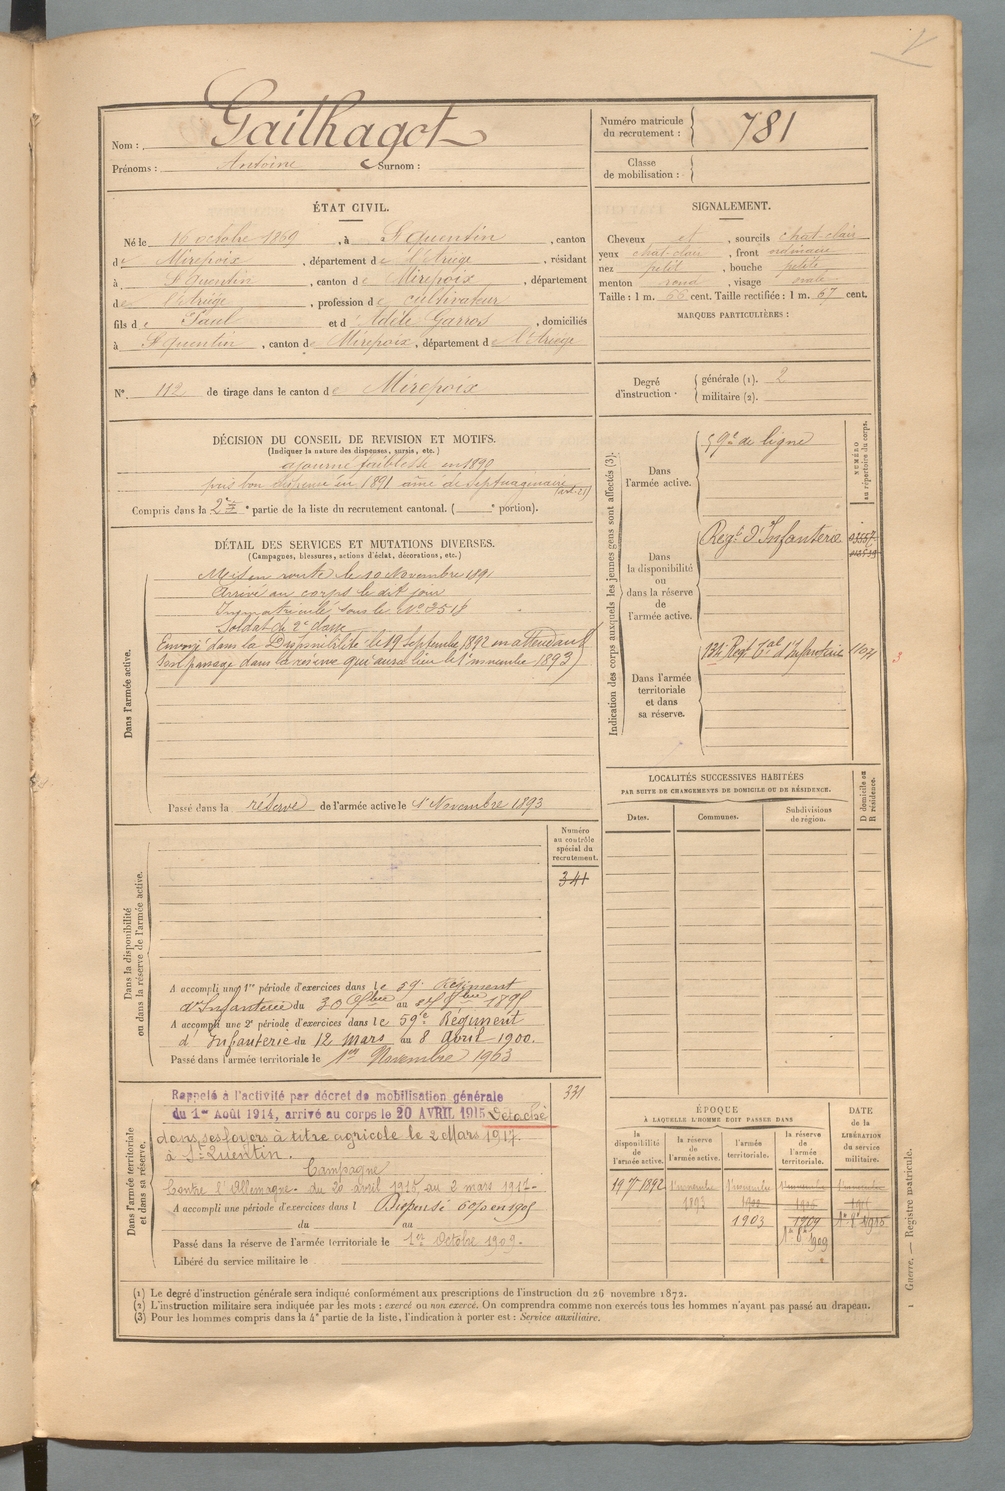 Gailhagot
Nom :
Prénoms : Antoine Surnom :
Numéro matricule du recrutement : 781
Classe de mobilisation :
ÉTAT CIVIL.
Né le 16 octobre 1869, à St quentin, canton
de Mirepoix, département de l'Ariège, résidant
à St Quentin, canton de Mirepoix, département
de l'Ariége, profession de cultivateur
fils de Paul et d' Adèle Garros, domiciliés
à St quentin, canton de Mirepoix, département de l'Ariège
SIGNALEMENT.
Cheveux et, sourcils chat-clair
yeux chat-clair, front ordinaire
nez petit, bouche petite
menton rond, visage ovale
Taille : 1 m. 66 cent. Taille rectifiée : 1 m. 67 cent.
MARQUES PARTICULIÈRES :
N° 112 de tirage dans le canton de Mirepoix
Degré d'instruction : générale (1). 2
militaire (2).
DÉCISION DU CONSEIL DE REVISION ET MOTIFS.
(Indiquer la nature des dispenses, sursis, etc.)
ajourné faiblesse en 1890
puis bon dispensé en 1891 aîné de septuagénaire
(art. 21)
Compris dans la 2e partie de la liste du recrutement cantonal. ( e portion).
DÉTAIL DES SERVICES ET MUTATIONS DIVERSES.
(Campagnes, blessures, actions d'éclat, décorations, etc.)
Dans l'armée active.
Mis en route le 10 Novembre 1891
Arrivé au corps le dit jour
Immatriculé sous le N°
Soldat de 2e classe
Envoyé dans la Disponibilité le 19 septembre 1892 en attendant
son passage dans la réserve qui aura lieu le 1er novembre 1893)
Passé dans la réserve de l'armée active le 1er Novembre 1893
Indication des corps auxquels les jeunes gens sont affectés (3).
NUMÉRO au répertoire du corps.
Dans l'armée active.
59e de ligne
Dans la disponibilité ou dans la réserve de l'armée active.
Regt d'Infanterie
Dans l'armée territoriale et dans sa réserve.
Regt tal d'Infanterie
LOCALITÉS SUCCESSIVES HABITÉES
PAR SUITE DE CHANGEMENTS DE DOMICILE OU DE RÉSIDENCE.
D domicile ou R résidence.
Dates. Communes. Subdivisions de région.
Dans la disponibilité ou dans la réserve de l'armée active.
Numéro au contrôle spécial du recrutement.
341
A accompli une 1re période d'exercices dans le 59e Régiment
d'Infanterie du
A accompli une 2e période d'exercices dans le 59e Régiment
d'Infanterie du 12 mars au 8 Avril 1900.
Passé dans l'armée territoriale le 1er Novembre 1903
Dans l'armée territoriale et dans sa réserve.
331
Rappelé à l'activité par décret de mobilisation générale
du 1er Août 1914, arrivé au corps le 20 AVRIL 1915 Détaché
dans ses foyers à titre agricole le 2 Mars 1917.
à St Quentin.
Campagne
Contre l'Allemagne. du 20 avril 1915 au 2 mars 1917.
A accompli une période d'exercices dans l Dispensé
du au
Passé dans la réserve de l'armée territoriale le 1er Octobre 1909.
Libéré du service militaire le
ÉPOQUE
À LAQUELLE L'HOMME DOIT PASSER DANS
la disponibilité de l'armée active.
la réserve de l'armée active.
l'armée territoriale.
la réserve de l'armée territoriale.
DATE de la LIBÉRATION du service militaire.
19 7 1892 1 novembre 1893 1 novembre 1903
1909
(1) Le degré d'instruction générale sera indiqué conformément aux prescriptions de l'instruction du 26 novembre 1872.
(2) L'instruction militaire sera indiquée par les mots : exercé ou non exercé. On comprendra comme non exercés tous les hommes n'ayant pas passé au drapeau.
(3) Pour les hommes compris dans la 4e partie de la liste, l'indication à porter est : Service auxiliaire.
1 Guerre. — Registre matricule.